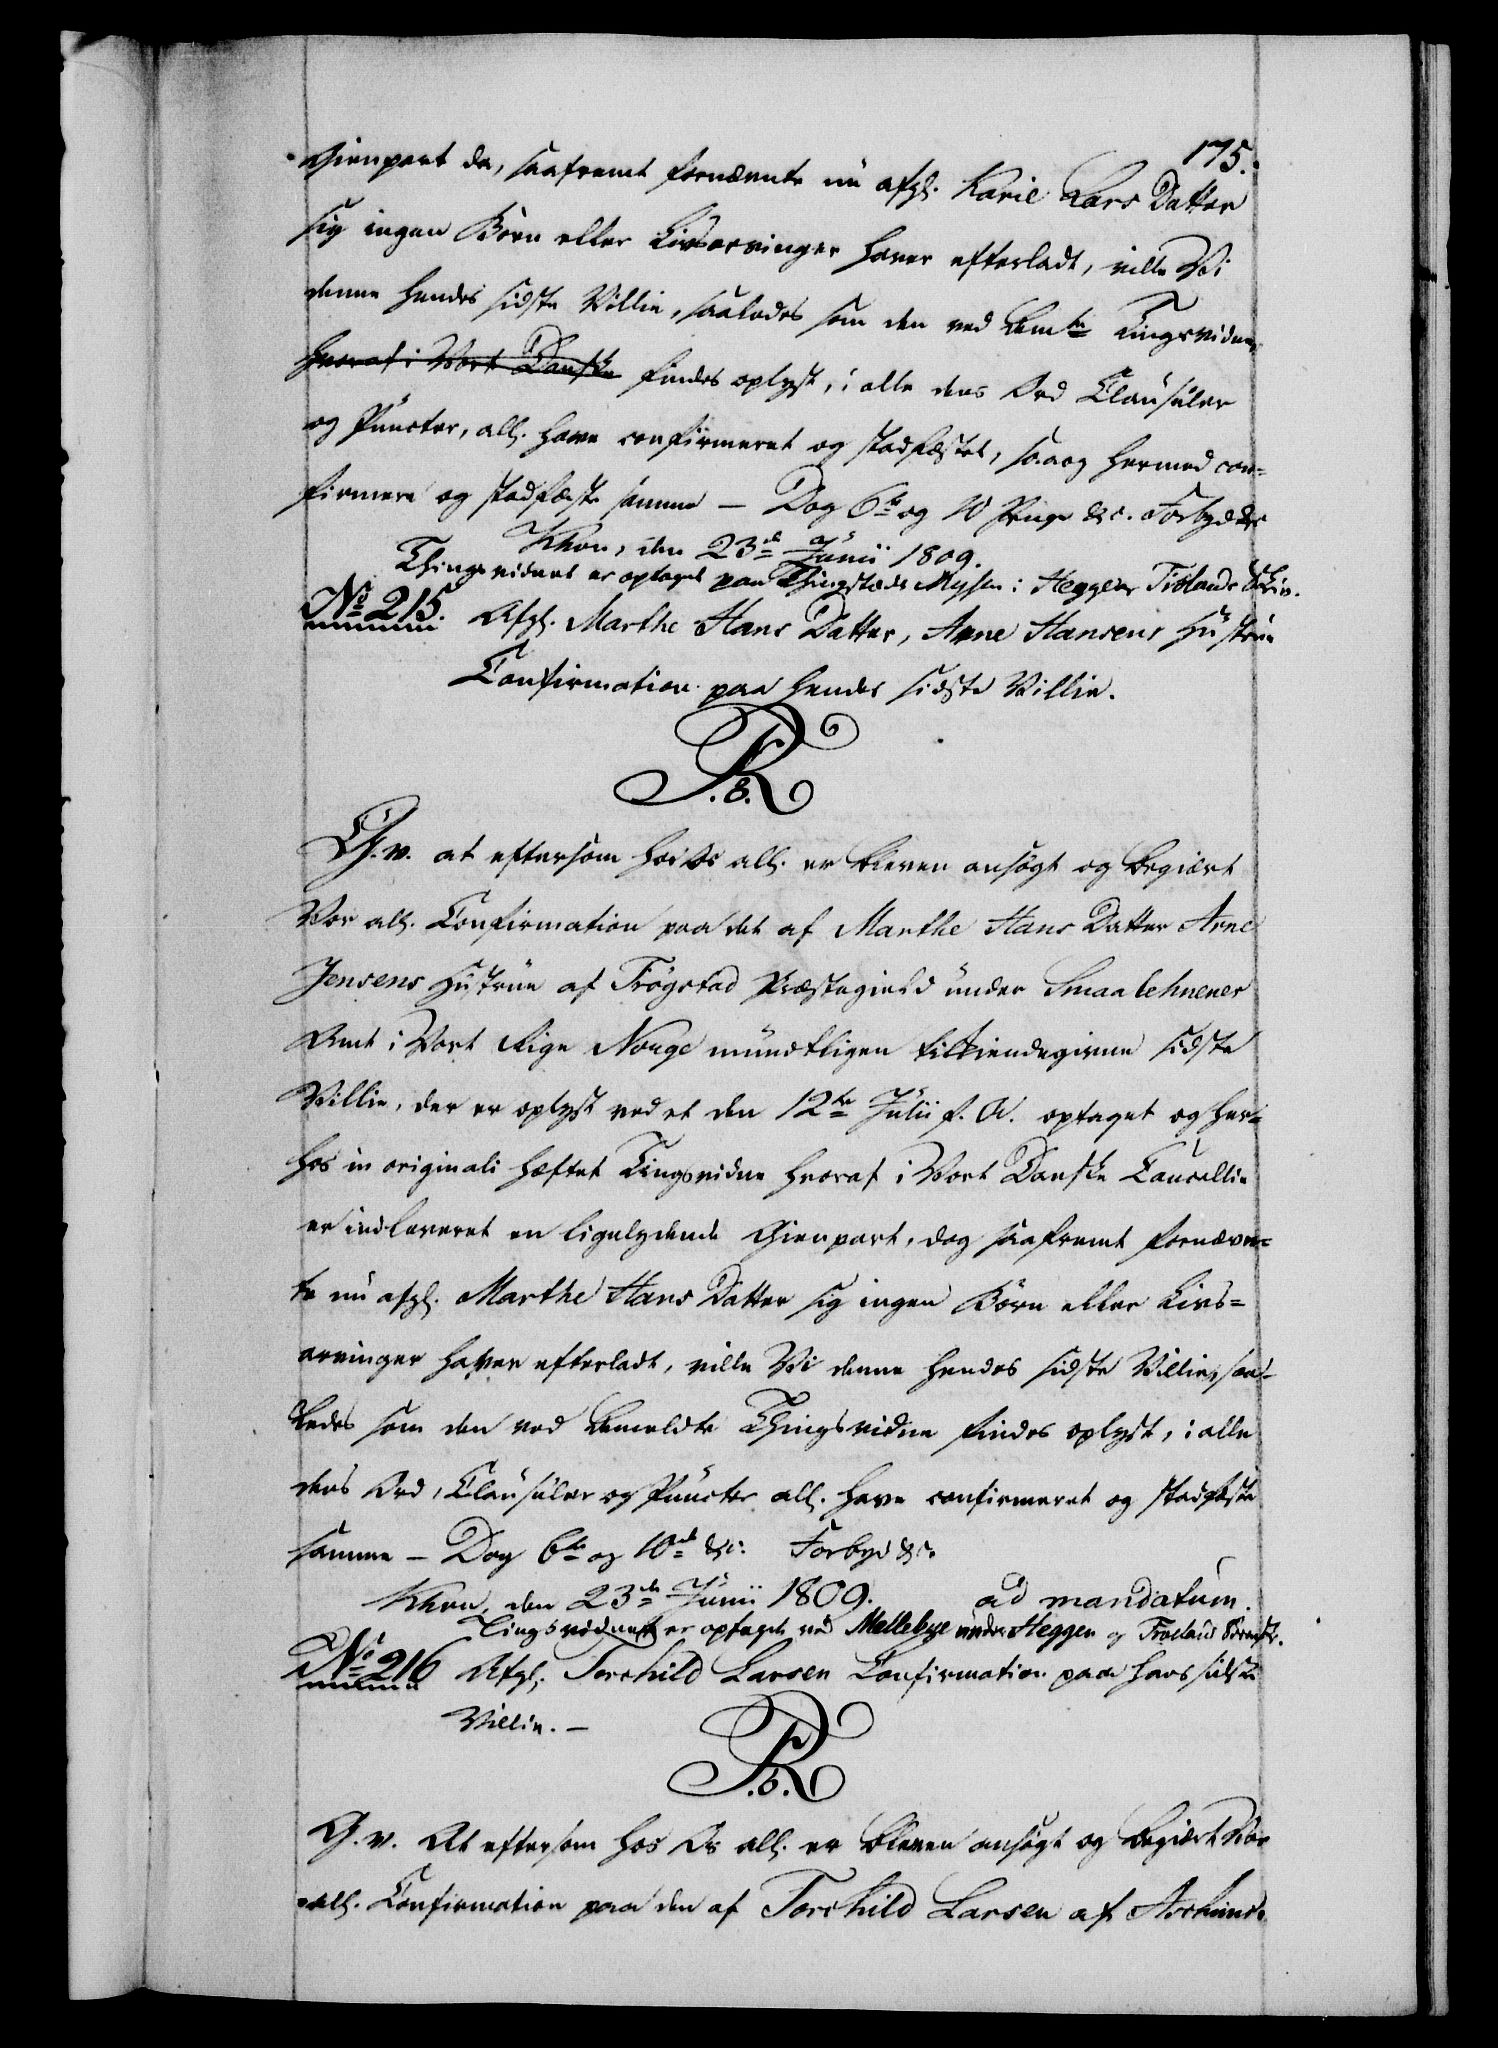 175.
Gienpart da, saafremt fornævnte nu afg. Karie Lars Datter
sig ingen Börn eller Livsarvinger haver efterladt, ville Vi
denne hendes sidste Villie, saaledes som den ved bem.te Tingsvidne,
hvoraf i Vort Danske findes oplyst, i alle dens Ord Clausuler
og Puncter, all. have confirmeret og stadfæstet, saa og hermed con-
firmere og stadfæste samme — Dog 6te og 10 Penge &c. Forbydde
Khavn, den 23de Junii 1809.
Thingsvidnet er optaget paa Thingstedet Mysen i Heggen Frölands Skibr.
No 215. Afg. Marthe Hans Datter, Arne Hansens Hustrue
Confirmation paa hendes sidste Villie.
F. 6. R.
G. v. at eftersom hos Os all. er bleven ansögt og begiert
Vor all. Confirmation paa det af Marthe Hans Datter Arne
Jensens Hustrue af Trögstad Præstegield under Smaalehnenes
Amt i Vort Rige Norge mundtligen tilkiendegivne sidste
Villie, der er oplyst ved et den 12te Julii f. A. optaget og her-
hos in originali hæftet Tingsvidne hvoraf i Vort Danske Cancellie
er indleveret en ligelydende Gienpart, dog saafremt fornævn-
te nu afg. Marthe Hans Datter sig ingen Börn eller Livs-
arvinger haver efterladt, ville Vi denne hendes sidste Villie, saa-
ledes som den ved bemeldte Thingsvidne findes oplyst, i alle
dens Ord, Clausuler og Puncter all. have confirmeret og stadfæste
samme — Dog 6te og 10de &c. Forbyd &c.
Khavn, den 23de Junii 1809. ad mandatum.
Tingsvidnet er optaget ved Mellebye under Heggen og Frölands
No 216 Afg. Torchild Larsen Confirmation paa hans sidste
Villie. —
F. 6. R.
G. v. At eftersom hos Os all. er bleven ansögt og begiert Vor
all. Confirmation paa den af Torchild Larsen af